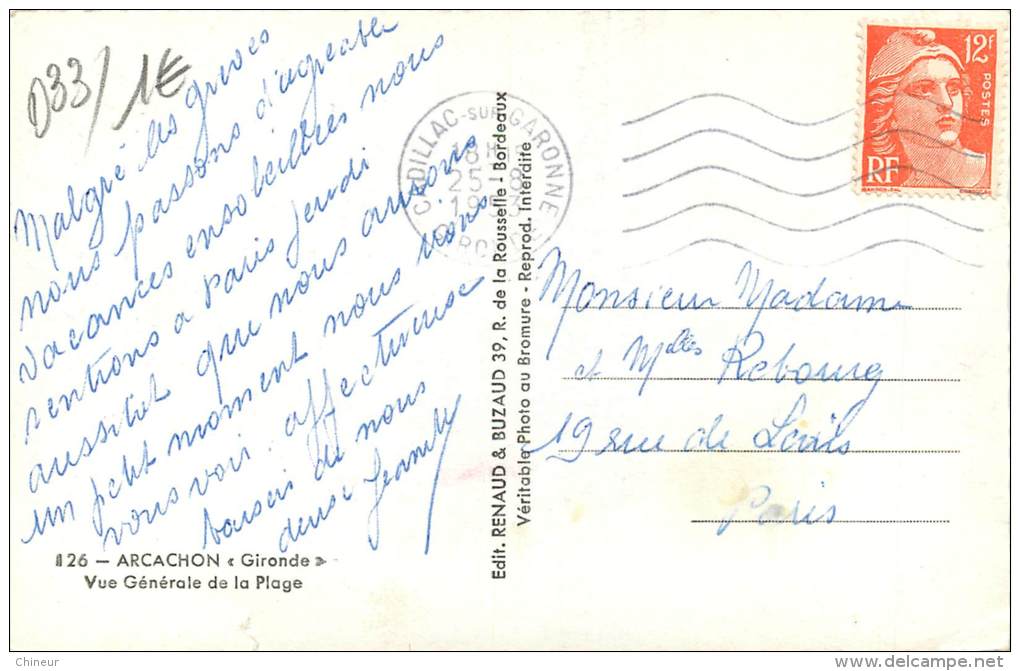 D33/1€
Malgré les grèves
nous passons d'agréables
vacances ensoleillées nous
rentrons à Paris Jeudi
aussitôt que nous aurons
un petit moment nous irons
vous voir. affectueuse
baisers de nous
deux
126 — ARCACHON « Gironde »
Vue Générale de la Plage
Edit. RENAUD & BUZAUD 39, R. de la Rousselle - Bordeaux
Véritable Photo au Bromure - Reprod. Interdite
CADILLAC-SUR-GARONNE
18H
25-8
12F
POSTES
RF
Monsieur Madame
et Mlles Rebourg
19 rue de
Paris
Chineur
delcampe.net